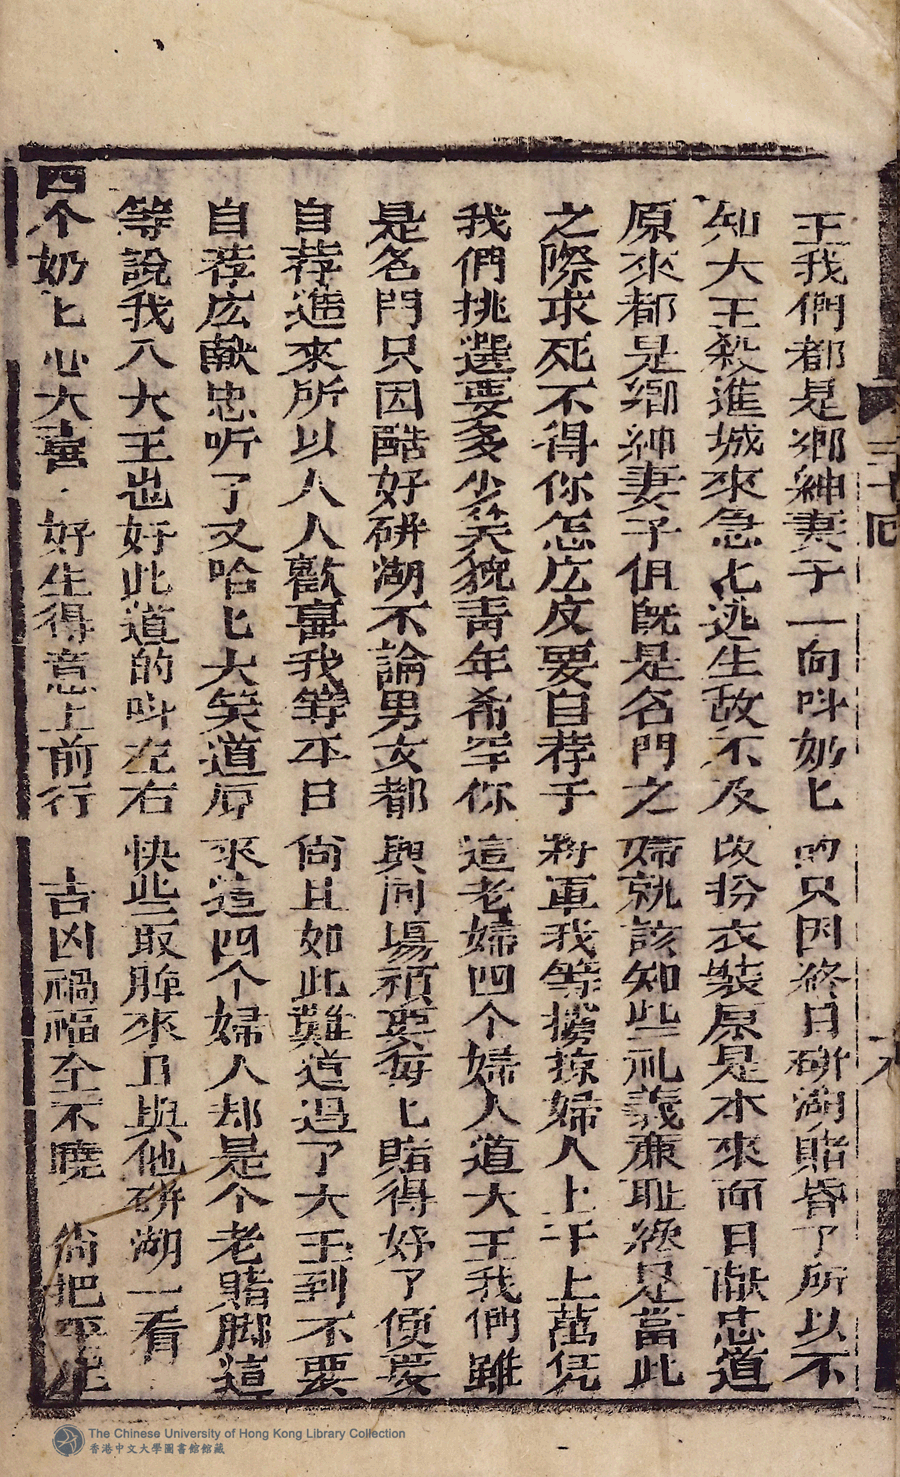 王我們都是鄉紳妻子一向呌奶匕的只因終日碰湖賭昏了所以不
知大王殺進城來急匕逃生故不及改扮衣裝原是本來面目献忠道
原來都是鄉紳妻子但既是名門之婦就該知些礼義廉耻縂是當此
之際求死不得你怎庅反要自荐于將軍我等擄掠婦人上千上萬凭
我們挑選要多少花容美貌青年希罕你這老婦四个婦人道大王我們雖
是名門只因酷好碰湖不論男女都與同塲頑耍每匕賭得好了便要
自荐進來所以人人歡喜我等平日尚且如此難道遇了大王到不要
自荐庅献忠听了又哈匕大笑道原來這四个婦人却是个老賭脚這
等說我八大王也好此道的呌左右快些取牌來且與他碰湖一看
四个奶匕心大喜 好生得意上前行 吉凶禍福全不曉 尚把
三十四
The Chinese University of Hong Kong Library Collection
香港中文大學圖書館館藏